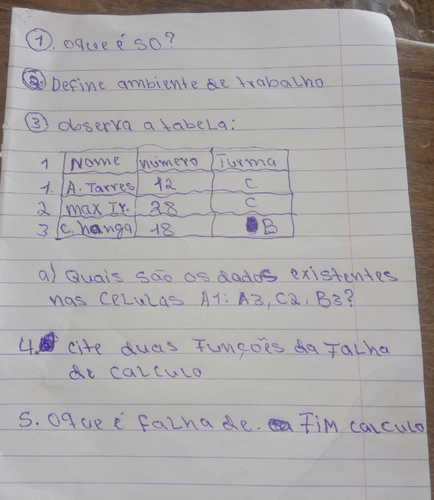 1. oque é SO?
2 Define ambiente de trabalho
3 observa a tabela:
1 Nome número Turma
1. A. Tarres 12 C
2 max Jr. 28 C
3 C. hanga 18 B
a) Quais são os dados existentes
nas celulas A1: A3, C2, B3?
4. cite duas Funções da Falha
de calculo
5. Oque é falha de. FIM calculo